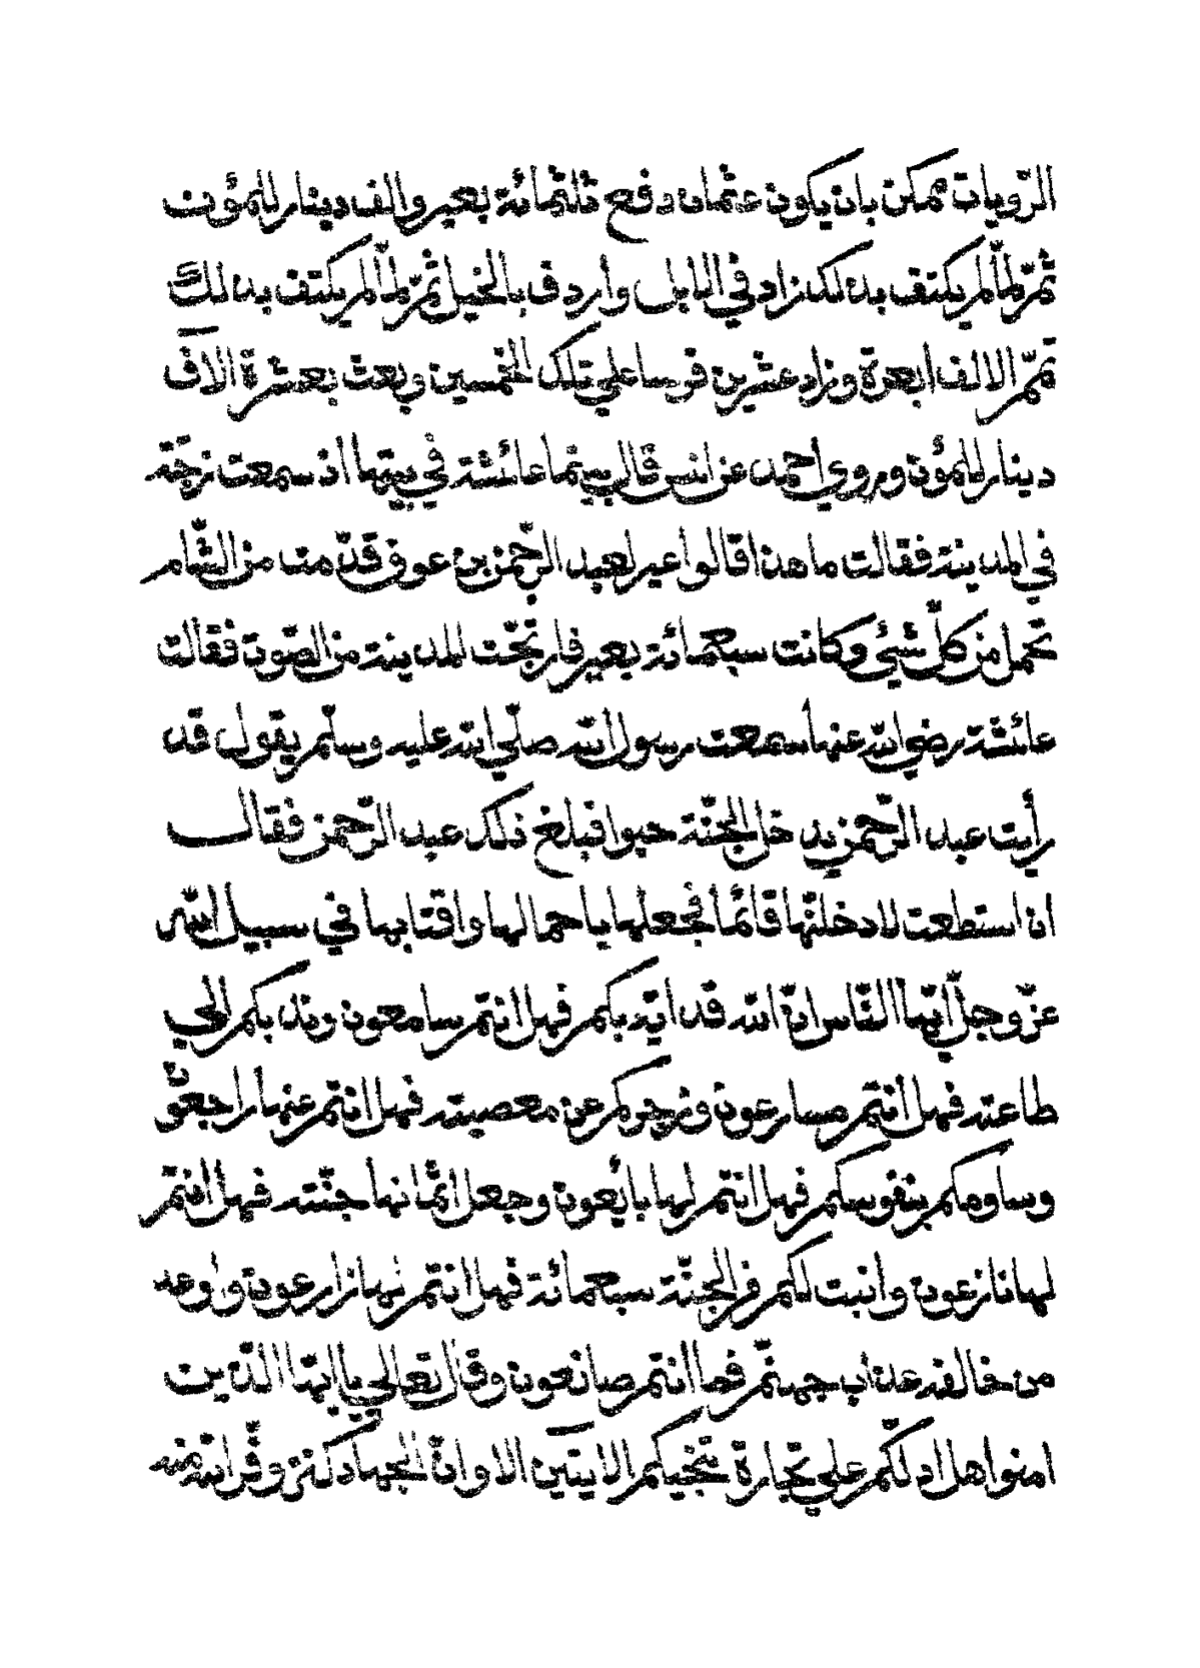 الرّويات ممكن بان يكون عثمان دفع ثلثمائة بعير والف دينار للمؤن
ثمّ لمّا لم يكتف بذلك زاد في الابل وأردف بالخيل ثمّ لمّا لم يكتف بذلك
تمّم الالف أبعرة وزاد عشرين فرسا علي تلك الخمسين وبعث بعشرة الآف
دينار للمؤن وروي احمد عن انس قال بينما عائشة في بيتها اذ سمعت رجّة
في المدينة فقالت ما هذا قالوا عير لعبد الرّحمن بن عوف قدّمت من الشّام
تحمل من كلّ شئي وكانت سبعمائة بعير فارتجّت المدينة من الصّوت فقالت
عائشة رضي الله عنها سمعت رسول الله صلّي الله عليه وسلّم يقول قد
رأيت عبد الرّحمن يدخل الجنّة حبوا فبلغ ذلك عبد الرّحمن فقال
ان استطعت لادخلنّها قائما فجعلها باحمالها واقتابها في سبيل الله
عزّ وجلّ ايّها النّاس انّ الله قد ايّه بكم فهل انتم سامعون وندبكم الي
طاعته فهل أنتم مسارعون وزجركم عن معصيته فهل انتم عنها راجعون
وساومكم بنفوسكم فهل انتم لها بائعون وجعل اثمانها جنّته فهل انتم
لها نازعون وأنبت لكم في الجنّة سبعمائة فهل انتم لها زارعون واوعد
من خالفه عذاب جهنّم فما انتم صانعون وقال تعالي يا ايّها الّذين
امنوا هل ادلّكم علي تجارة تنجيكم الايتين الا وانّ الجهاد كنز وفّر الله منه